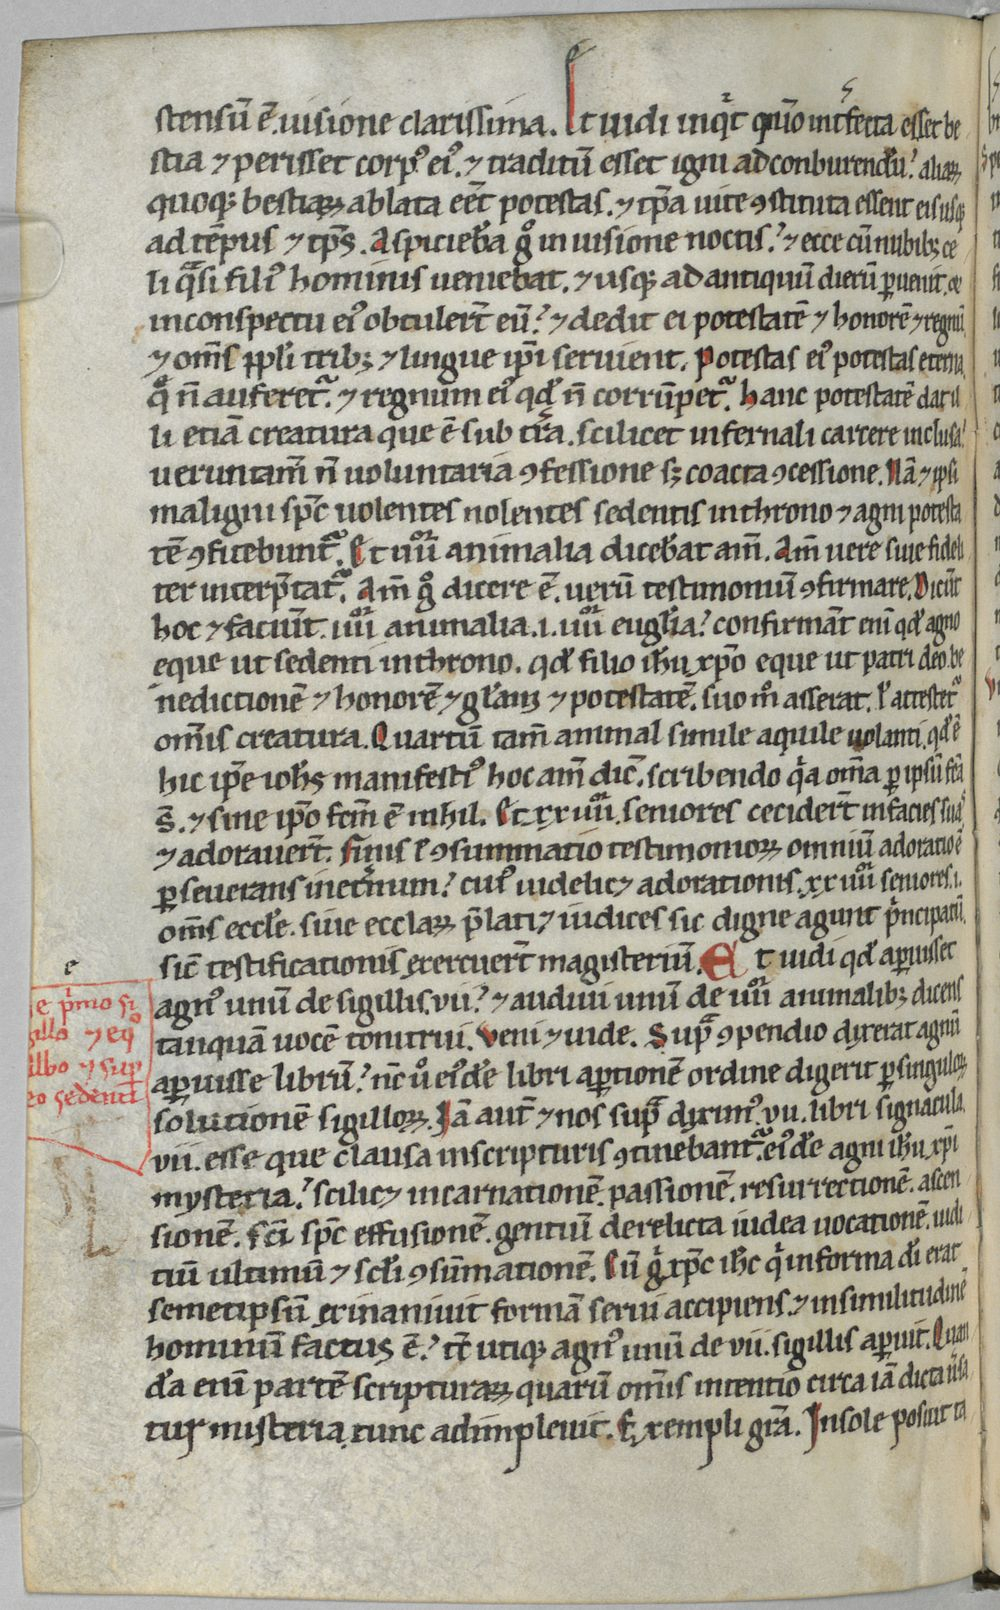 stensū ē. uisione clarissima. Et uidi inqͥt quō int̾fecta esset be
stia ⁊ perisset corpꝰ eiꝰ. ⁊ traditū esset igni ad conburendū? aliaꝝ
quoqꝫ bestiaꝝ ablata eēt potestas. ⁊ tp̄a uite ꝯstituta essent eis usqꝫ
ad tēpus ⁊ tp̄s. Aspiciebā gͦ in uisione noctis? ⁊ ecce cū nubibꝫ ce
li qͣsi filiꝰ hominis ueniebat. ⁊ usqꝫ ad antiquū dierū ꝑuenit. ⁊
in conspectu eiꝰ obtulert̄ eū? ⁊ dedit ei potestatē ⁊ honorē ⁊ regnū
⁊ om̄s ppl̓i tribꝫ ⁊ lingue ip̄i seruient. Potestas eiꝰ potestas eterna
qͣ n̄ auferetᷓ. ⁊ regnum eiꝰ qd̓ n̄ corrūpetᷓ. Hanc potestatē dat il
li etiā creatura que ē sub tr̄a. scilicet infernali carcere inclusa?
ueruntam̄ n̄ uoluntaria ꝯfessione sꝫ coacta ꝯcessione. Nā ⁊ ip̄si
maligni sp̄c uolentes nolentes sedentis in throno ⁊ agni potesta
tē ꝯfitebuntᷓ. Et iiiiᵒʳ animalia dicebāt am̄. Am̄ uere siue fideli
ter interp̄tatᷓ. Am̄ gͦ dicere ē. uerū testimoniū ꝯfirmare. Dicūt
hoc ⁊ faciūt. iiiiᵒʳ animalia .i. iiiiᵒʳ eugl̓ia? confirmāt eni qd̓ agno
eque ut sedenti in throno. qd̓ filio ih̄u xp̄o eque ut patri deo. be
nedictionē ⁊ honorē ⁊ gl̓iam ⁊ potestatē. suo mͦ asserat. l̓ attestetᷓ
om̄is creatura. Quartū tam̄ animal simile aquile uolanti. qd̓ ē
hic ip̄e ioh̄s manifestiꝰ hoc am̄ dic̄. scribendo qͥa om̄a ꝑ ipsū fc̄a
s̄. ⁊ sine ip̄o fc̄m ē nihil. Et xxiiiiᵒʳ. seniores ceciderūt in facies suas
⁊ adorauert̄. Finis l̓ ꝯsummatio testimonioꝝ omniū adoratio ē
ꝑseuerans in et̄num? cuiꝰ uidelicꝫ adorationis. xxiiiiᵒʳ seniores .i.
om̄s eccl̓e. siue ecclaꝝ p̄lati ⁊ iudices sic digne agunt pͥncipatū.
sic̄ testificationis exercuert̄ magisteriū. Et uidi qd̓ aperuisset
agnꝰ unū de sigillis .vii? ⁊ audiui unū de iiiiᵒʳ animalibꝫ dicens
tanquā uocē tonitrui. Veni ⁊ uide. Supᷓ ꝯpendio dixerat agnū
aperuisse librū? nc̄ uͦ eiꝰdē libri aꝑtionē ordine digerit ꝑ singuloꝝ
solutionē sigilloꝝ. Iā aut̄ ⁊ nos supᷓ diximꝰ. vii. libri signacula
vii. esse que clausa in scripturis ꝯtinebantᷓ. eiꝰdē agni ih̄u xp̄i
mysteria? scilicꝫ incarnationē. passionē. resurrectionē. ascen
sionē. sc̄i sp̄c effusionē. gentiū derelicta iudea uocationē. iudi
tiū ultimū ⁊ scl̓i ꝯsūmationē. Cū gͦ xp̄c ih̄c qͥ in forma dī erat
semetipsū exinaniuit formā serui accipiens. ⁊ in similitudinē
hominū factus ē? tc̄ utiqꝫ agnꝰ unū de vii. sigillis aperuit. Quan
dā eni partē scripturaꝝ quarū om̄is intentio circa iā dicta uͥsa
tur misteria tunc adimpleuit. Exempli gr̄a. In sole posuit ta
e
e pͥmo si
gillo ⁊ eqͦ
albo ⁊ sup
eo sedenti